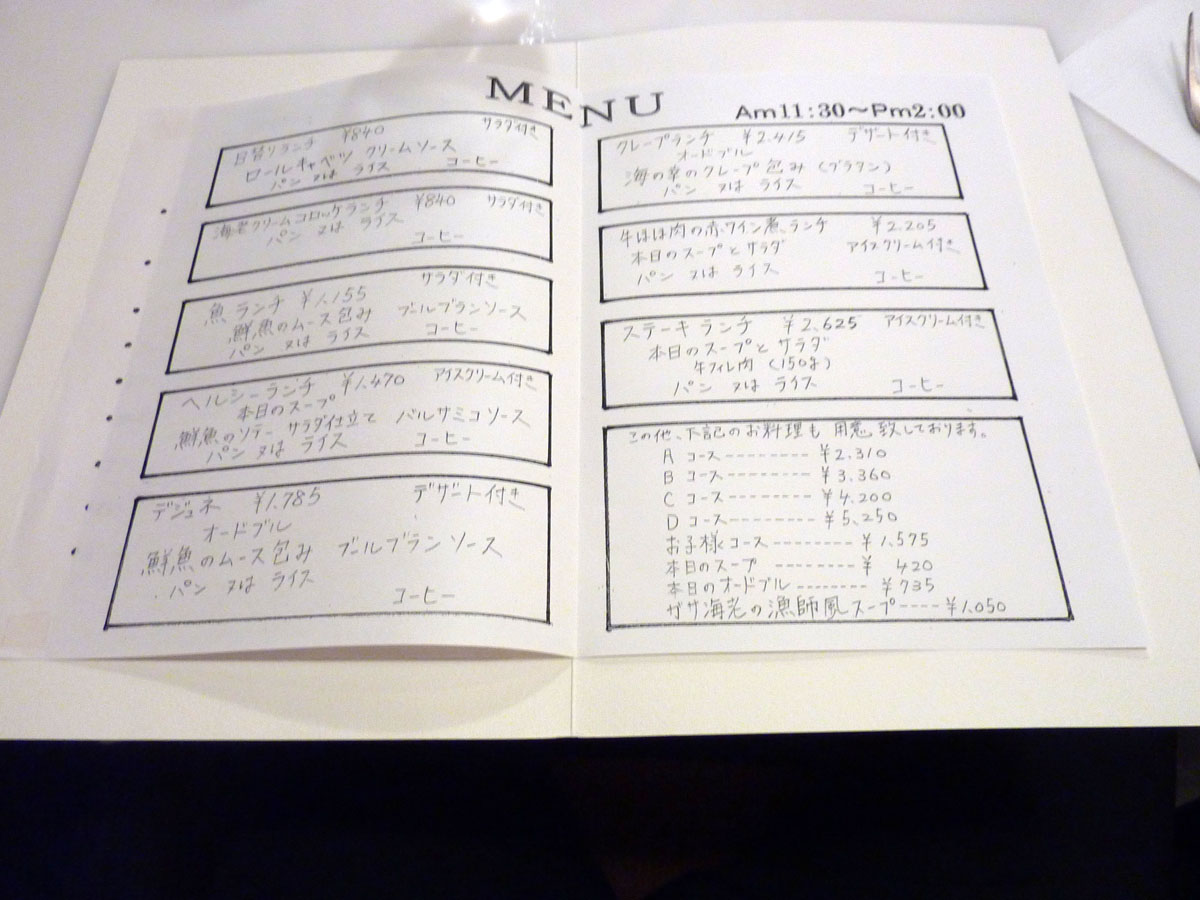 MENU
Am11:30～Pm2:00
日替りランチ ¥840 サラダ付き
ロールキャベツ クリームソース
パン 又は ライス コーヒー
海老クリームコロッケランチ ¥840 サラダ付き
パン 又は ライス
コーヒー
サラダ付き
魚ランチ ¥1,155
鮮魚のムース包み ブールブランソース
パン 又は ライス コーヒー
ヘルシーランチ ¥1,470 アイスクリーム付き
本日のスープ
鮮魚のソテー サラダ仕立て バルサミコソース
パン 又は ライス コーヒー
デジュネ ¥1,785 デザート付き
オードブル
鮮魚のムース包み ブールブランソース
パン 又は ライス
コーヒー
クレープランチ ¥2,415 デザート付き
オードブル
海の幸のクレープ包み (グラタン)
パン 又は ライス コーヒー
牛ほほ肉の赤ワイン煮ランチ ¥2,205
本日のスープとサラダ アイスクリーム付き
パン 又は ライス コーヒー
ステーキランチ ¥2,625 アイスクリーム付き
本日のスープとサラダ
牛フィレ肉 (150g)
パン 又は ライス コーヒー
この他、下記のお料理も用意致しております。
Aコース--------¥2,310
Bコース--------¥3,360
Cコース--------¥4,200
Dコース--------¥5,250
お子様コース--------¥1,575
本日のスープ--------¥420
本日のオードブル-------¥735
ガサ海老の漁師風スープ----¥1,050